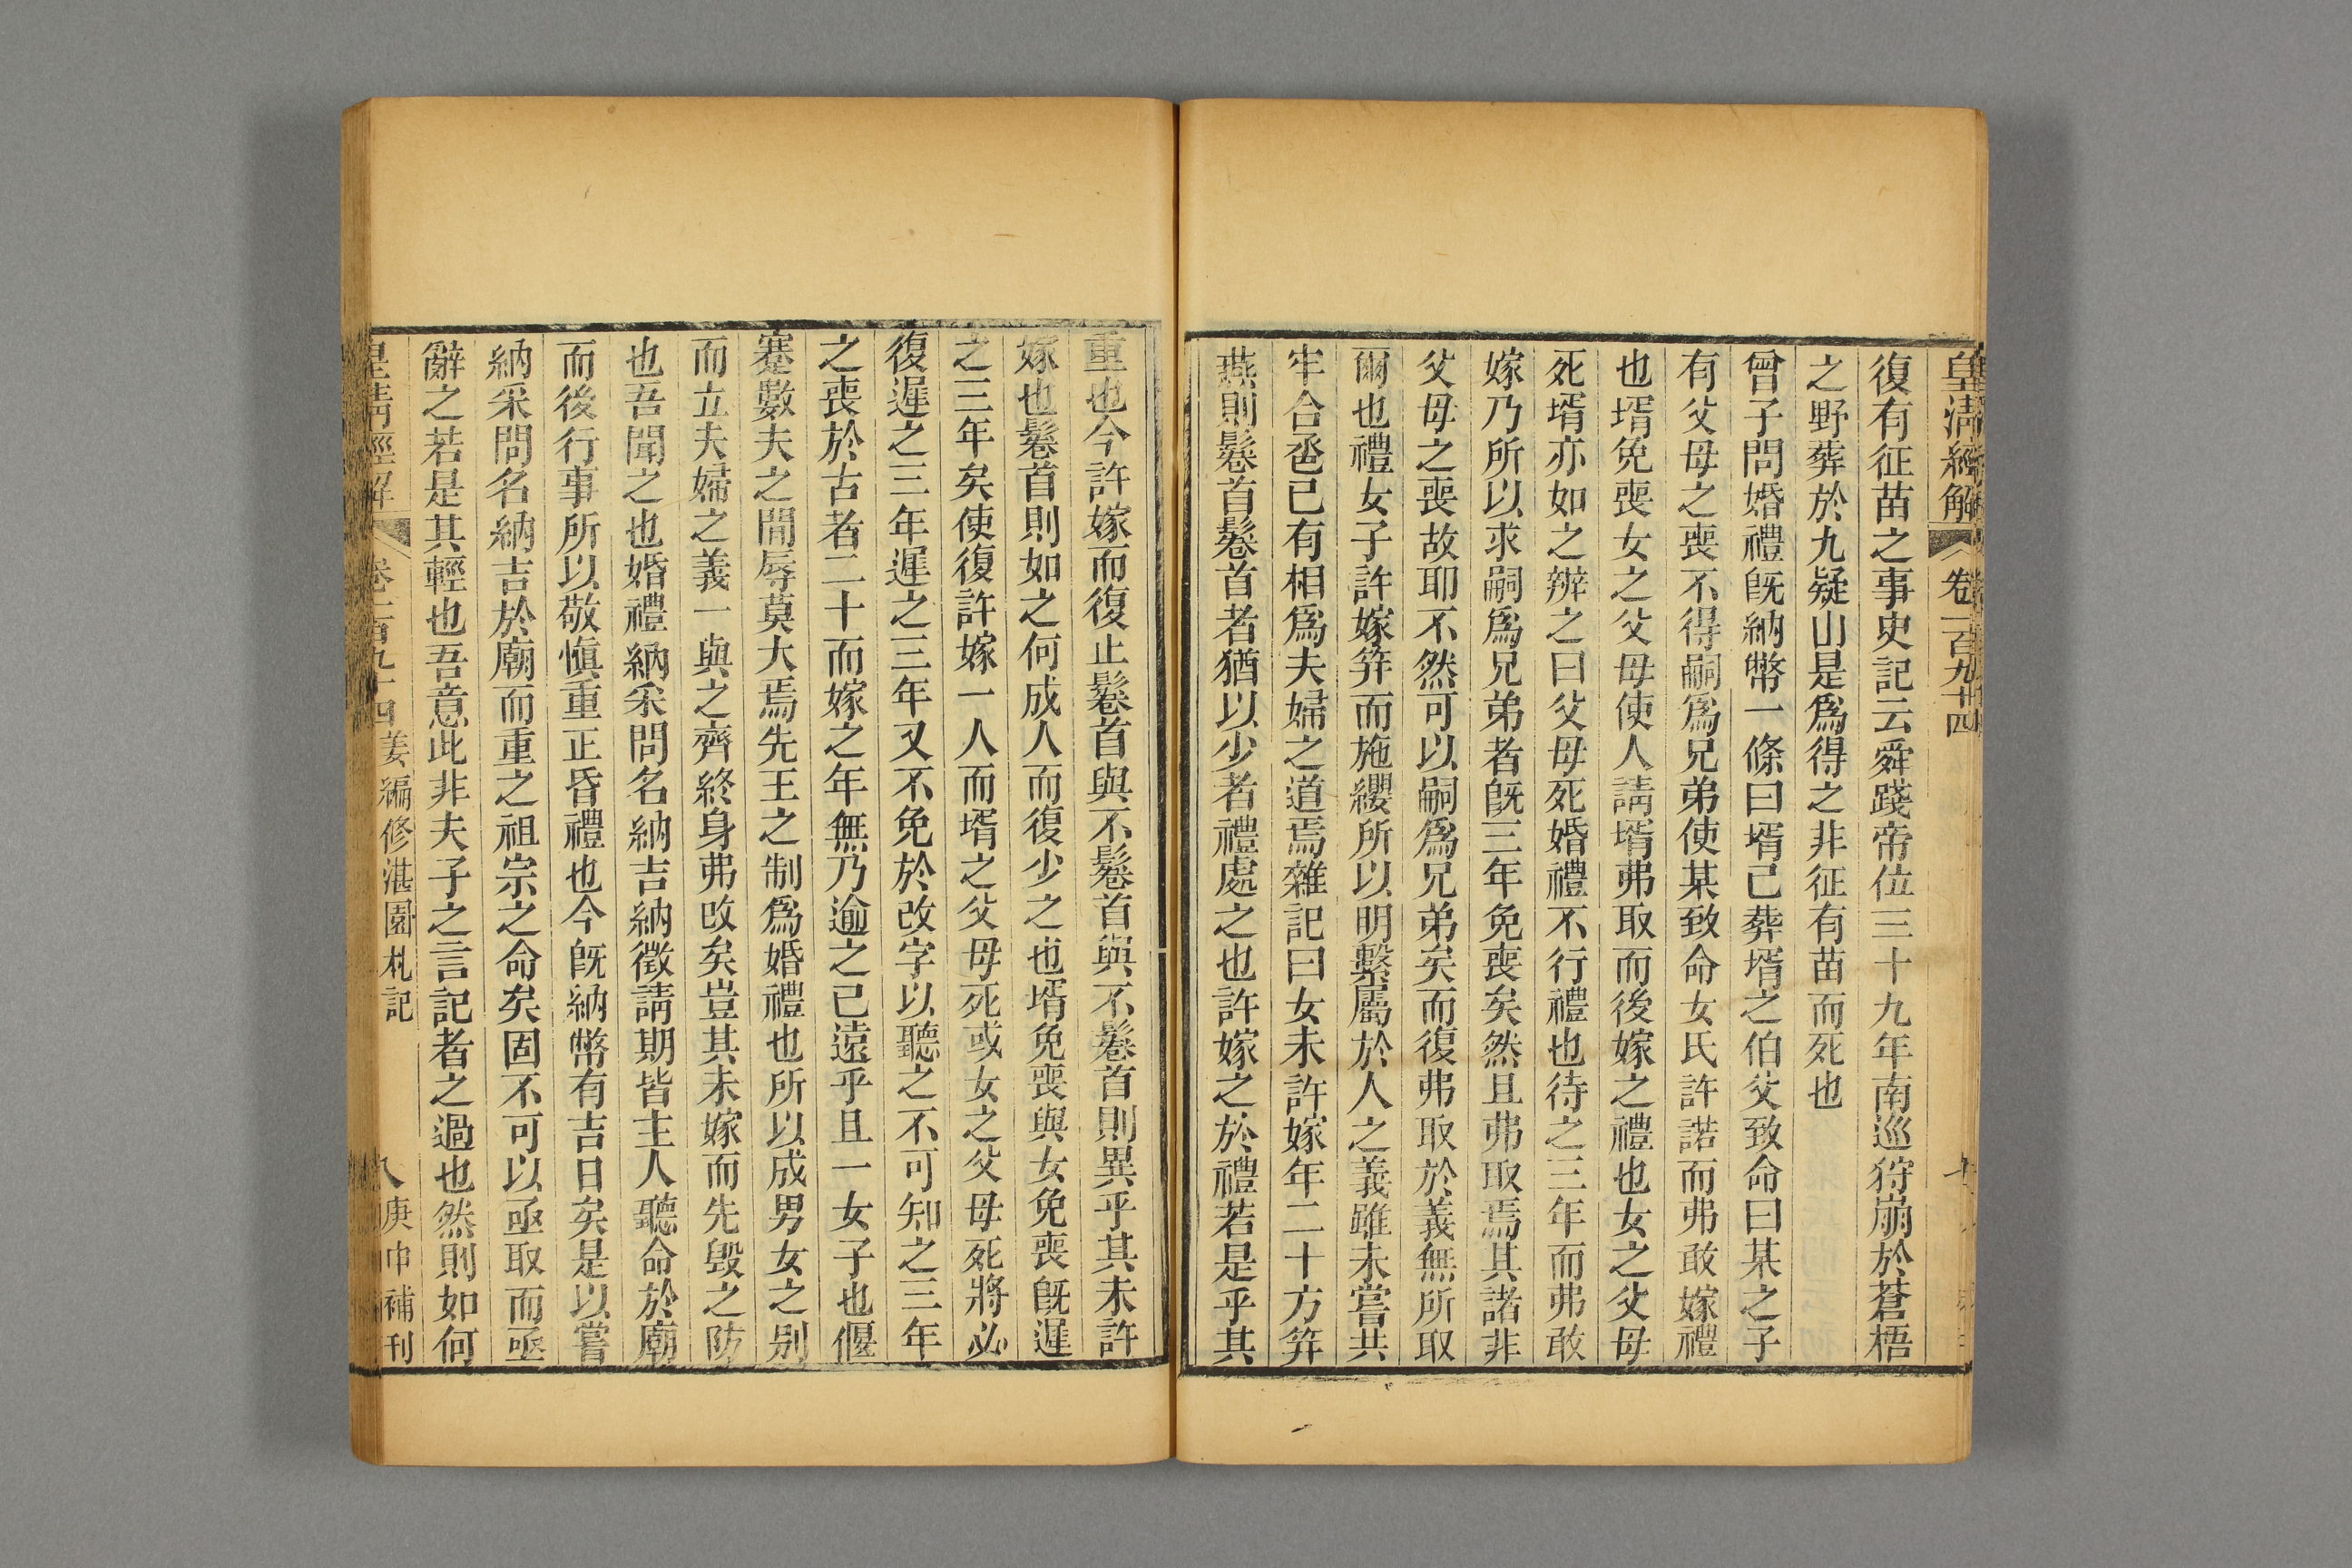 皇清經解 卷一百九十四
復有征苗之事史記云舜踐帝位三十九年南巡狩崩於蒼梧
之野葬於九疑山是爲得之非征有苗而死也
曾子問婚禮旣納幣一條曰壻已葬壻之伯父致命曰某之子
有父母之喪不得嗣爲兄弟使某致命女氏許諾而弗敢嫁禮
也壻免喪女之父母使人請壻弗取而後嫁之禮也女之父母
死壻亦如之辨之曰父母死婚禮不行禮也待之三年而弗敢
嫁乃所以求嗣爲兄弟者旣三年免喪矣然且弗取焉其諸非
父母之喪故耶不然可以嗣爲兄弟矣而復弗取於義無所取
爾也禮女子許嫁笄而施纓所以明繫屬於人之義雖未嘗共
牢合巹已有相爲夫婦之道焉雜記曰女未許嫁年二十方笄
燕則鬈首鬈首者猶以少者禮處之也許嫁之於禮若是乎其
重也今許嫁而復止鬈首與不鬈首與不鬈首則異乎其未許
嫁也鬈首則如之何成人而復少之也壻免喪與女免喪旣遲
之三年矣使復許嫁一人而壻之父母死或女之父母死將必
復遲之三年遲之三年又不免於改字以聽之不可知之三年
之喪於古者二十而嫁之年無乃逾之已遠乎且一女子也偃
蹇數夫之間辱莫大焉先王之制爲婚禮也所以成男女之别
而立夫婦之義一與之齊終身弗改矣豈其未嫁而先毀之防
也吾聞之也婚禮納采問名納吉納徵請期皆主人聽命於廟
而後行事所以敬愼重正昏禮也今旣納幣有吉日矣是以嘗
納采問名納吉於廟而重之祖宗之命矣固不可以亟取而亟
辭之若是其輕也吾意此非夫子之言記者之過也然則如何
皇清經解 卷一百九十四 姜編修湛園札記 八 庚申補刊